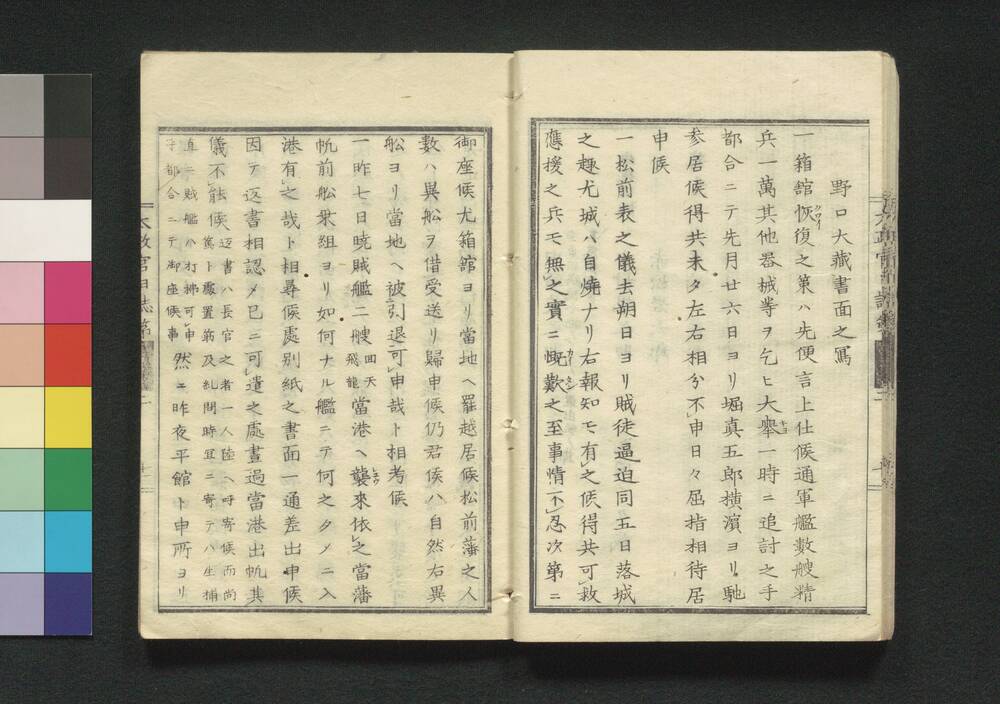 野口大藏書面之寫
一箱舘恢復之策ハ先便言上仕候通軍艦數艘精
兵一萬其他器械等ヲ乞ヒ大擧一時ニ追討之手
都合ニテ先月廿六日ヨリ堀真五郎横濱ヨリ馳
参居候得共未タ左右相分不申日々屈指相待居
申候
一松前表之儀去朔日ヨリ賊徒逼迫同五日落城
之趣尤城ハ自燒ナリ右報知モ有之候得共可救
應援之兵モ無之實ニ慨歎之至事情不忍次第ニ
御座候尤箱館ヨリ當地ヘ罷越居候松前藩之人
數ハ異船ヲ借受送リ歸申候仍君侯ハ自然右異
舩ヨリ當地ヘ被引退可申哉ト相考候
一昨七日曉賊艦二艘回天飛龍當港ヘ襲來依之當藩
帆前舩乗組ヨリ如何ナル艦ニテ何之タメニ入
港有之哉ト相尋候處別紙之書面一通差出申候
因テ返書相認メ已ニ可遣之處晝過當港出帆其
儀不能候返書ハ長官之者一人陸ヘ呼寄候而尚
篤ト處置筋及糺問時宜ニ寄テハ生捕
直ニ賊艦ハ打拂可申
手都合ニテ御座候事
然ニ昨夜平館ト申所ヨリ
太政官日誌第